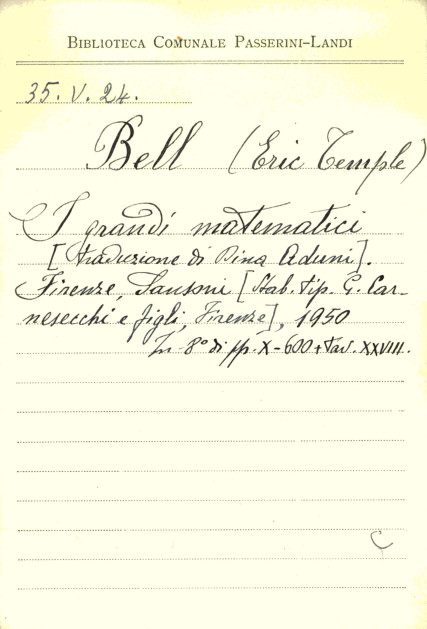 BIBLIOTECA COMUNALE PASSERINI-LANDI
35. V. 24.
Bell (Eric Temple)
I grandi matematici
[traduzione di Pina Aduni].
Firenze, Sansoni [Stab. tip. G. Car-
nesecchi e figli, Firenze], 1950
In 8° di pp. X-600 + tav. XXVIII.
C